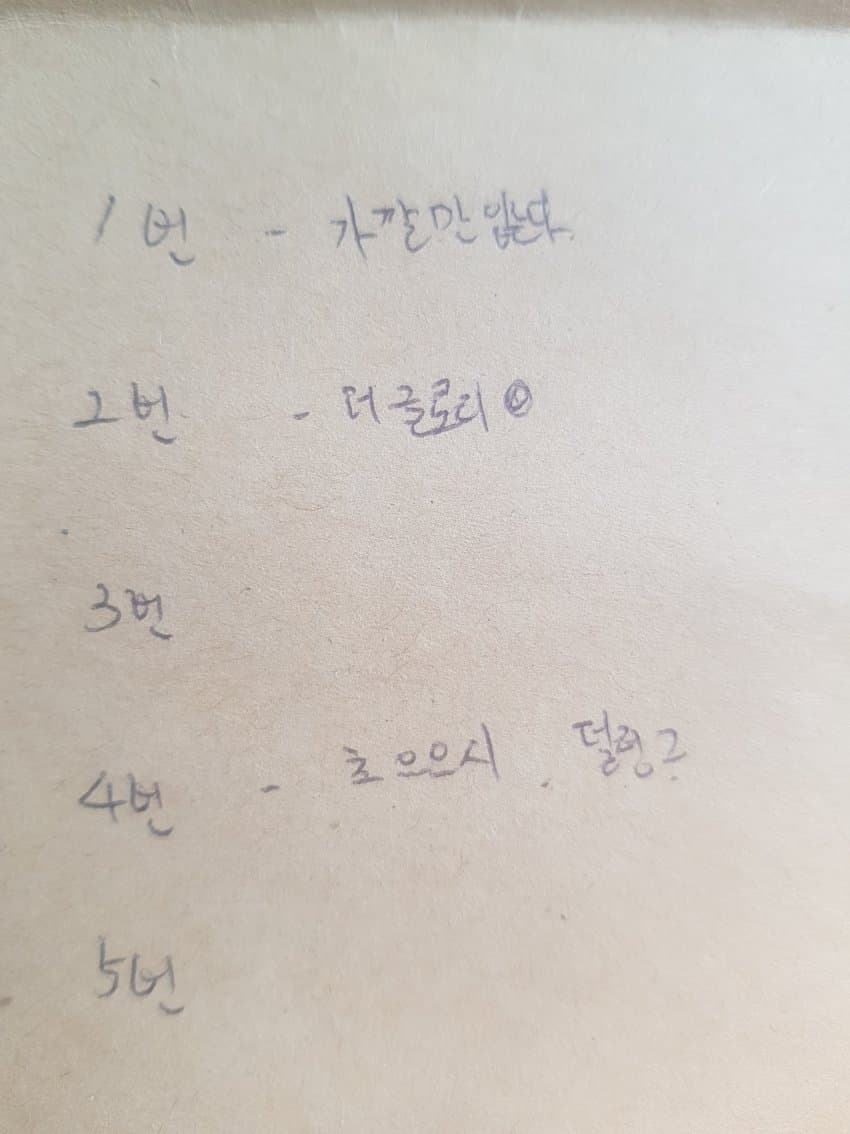 1번 - 가깔만 입는다.
2번 - 더글로리
3번
4번 - 초으으시 . 덜렁구
5번